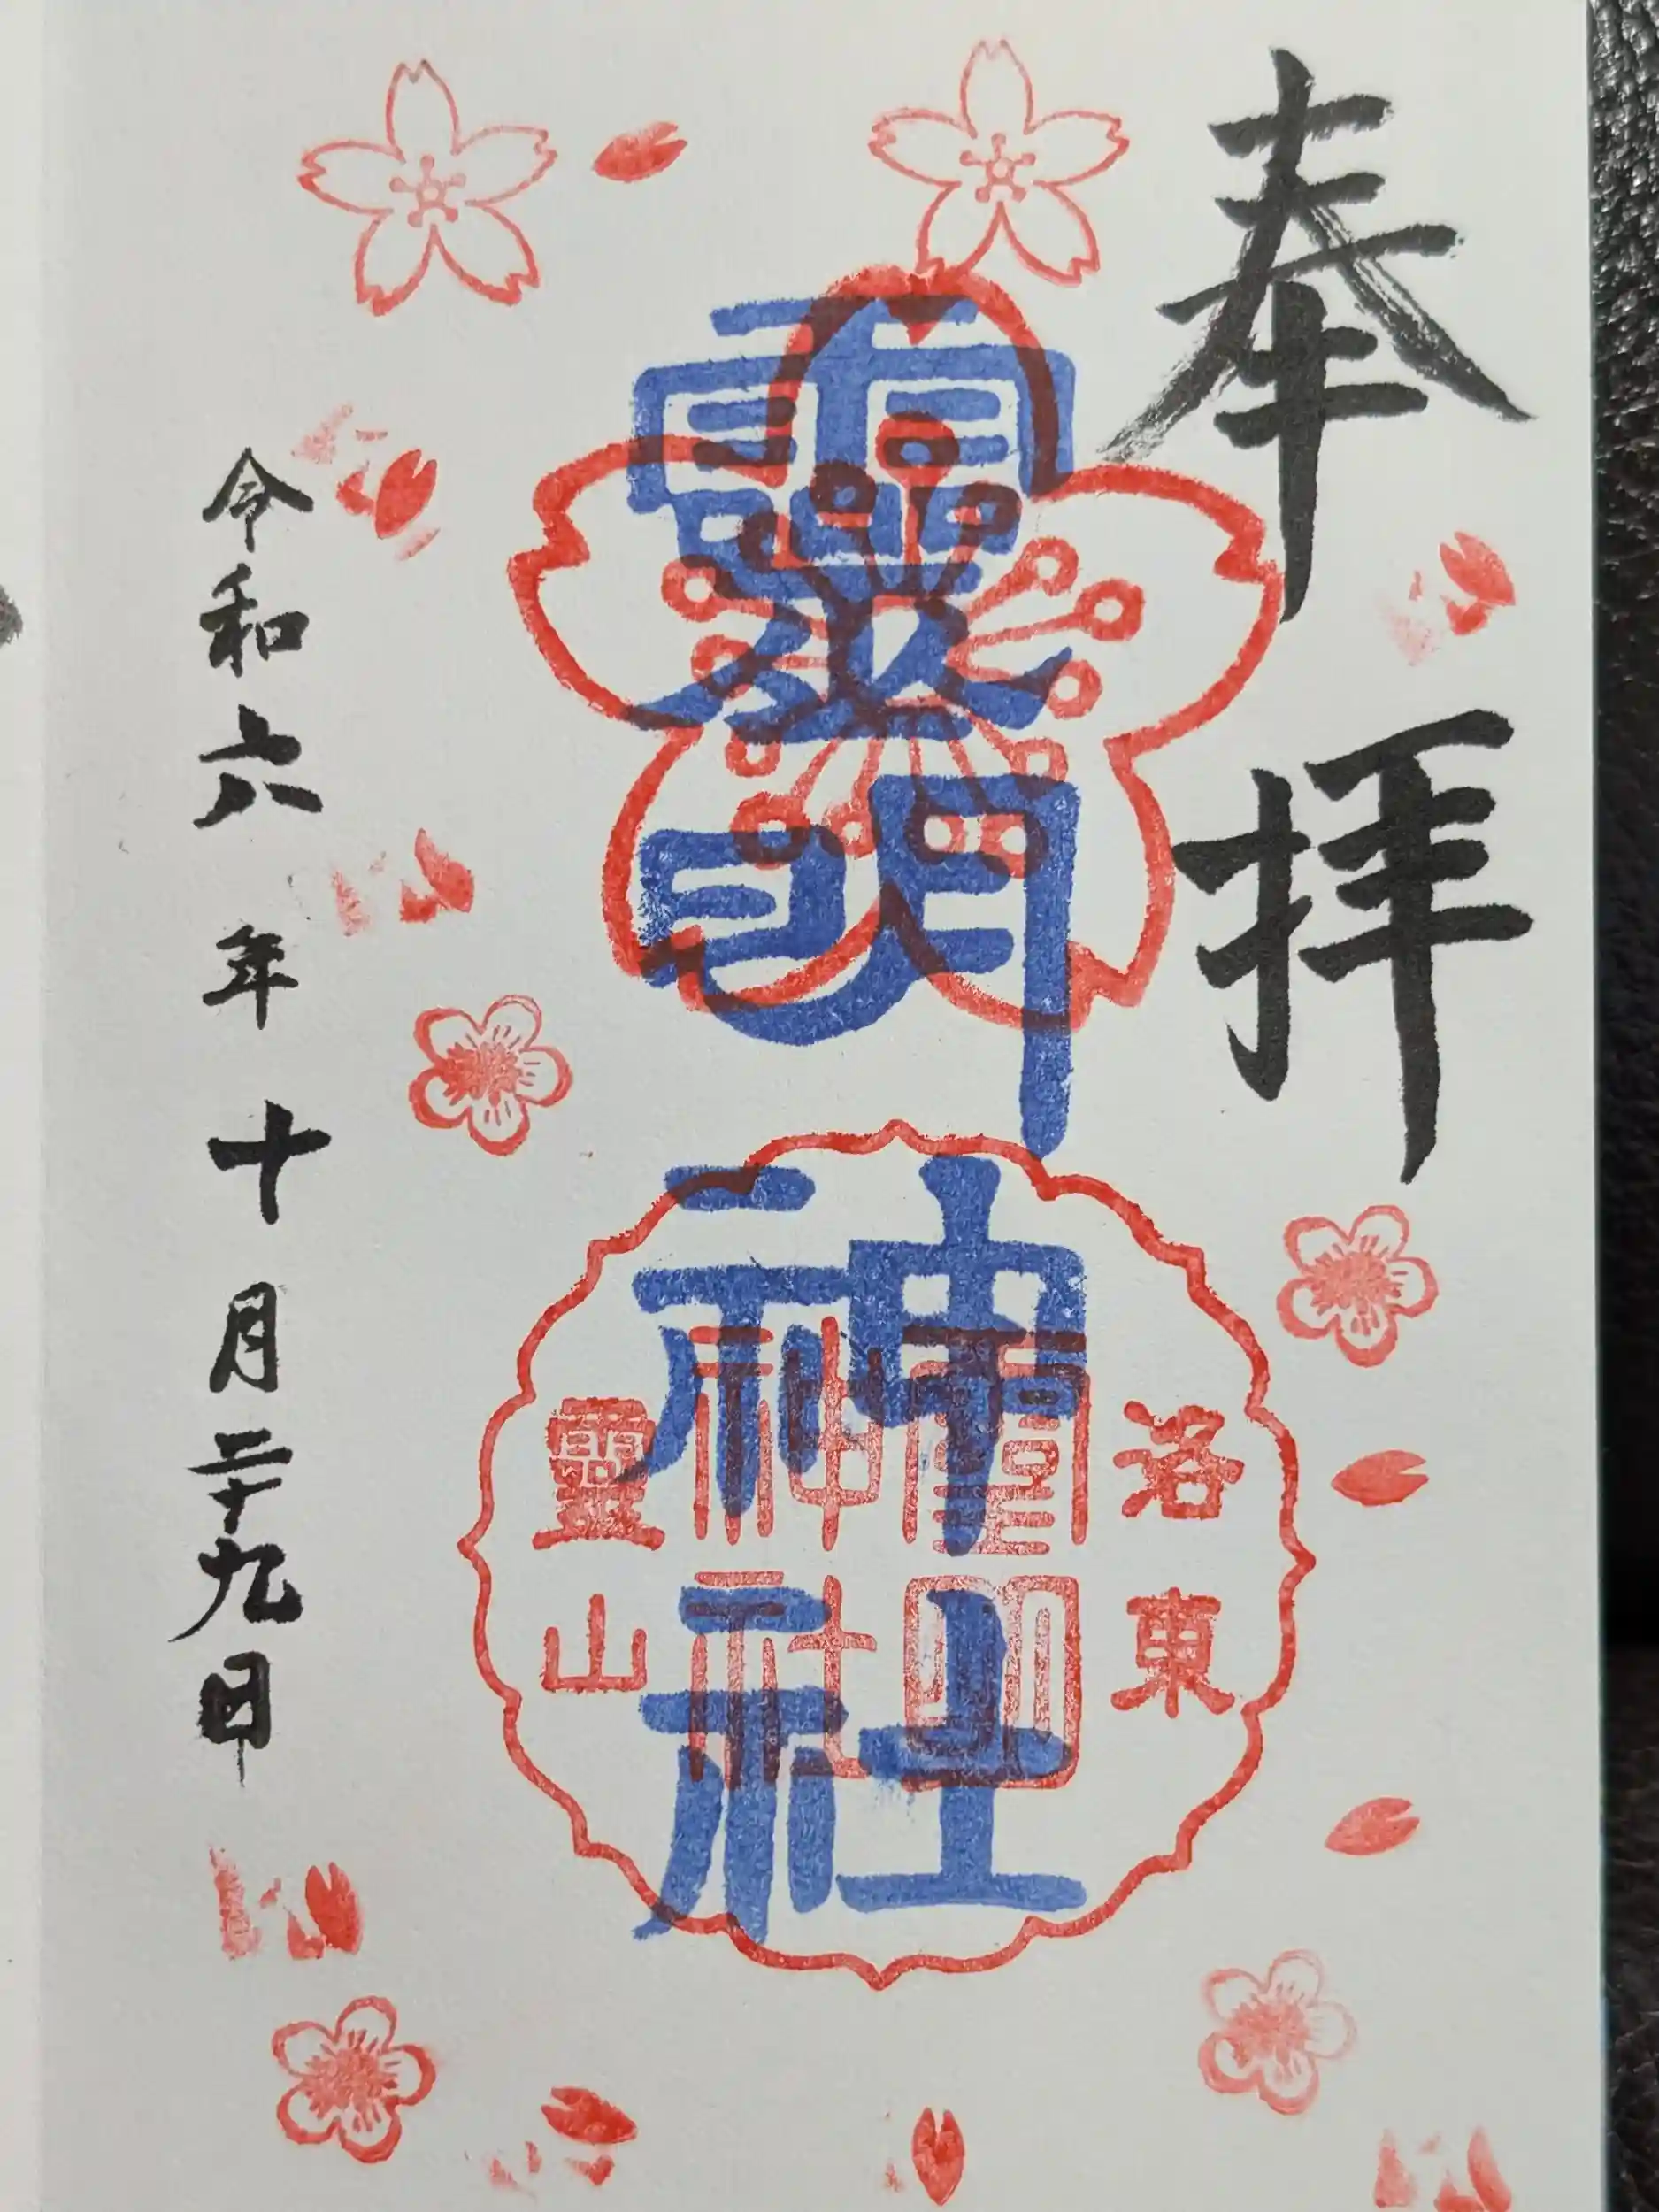 奉拝
靈明神社
洛東
靈明
神社
靈山
令和六年十月二十九日